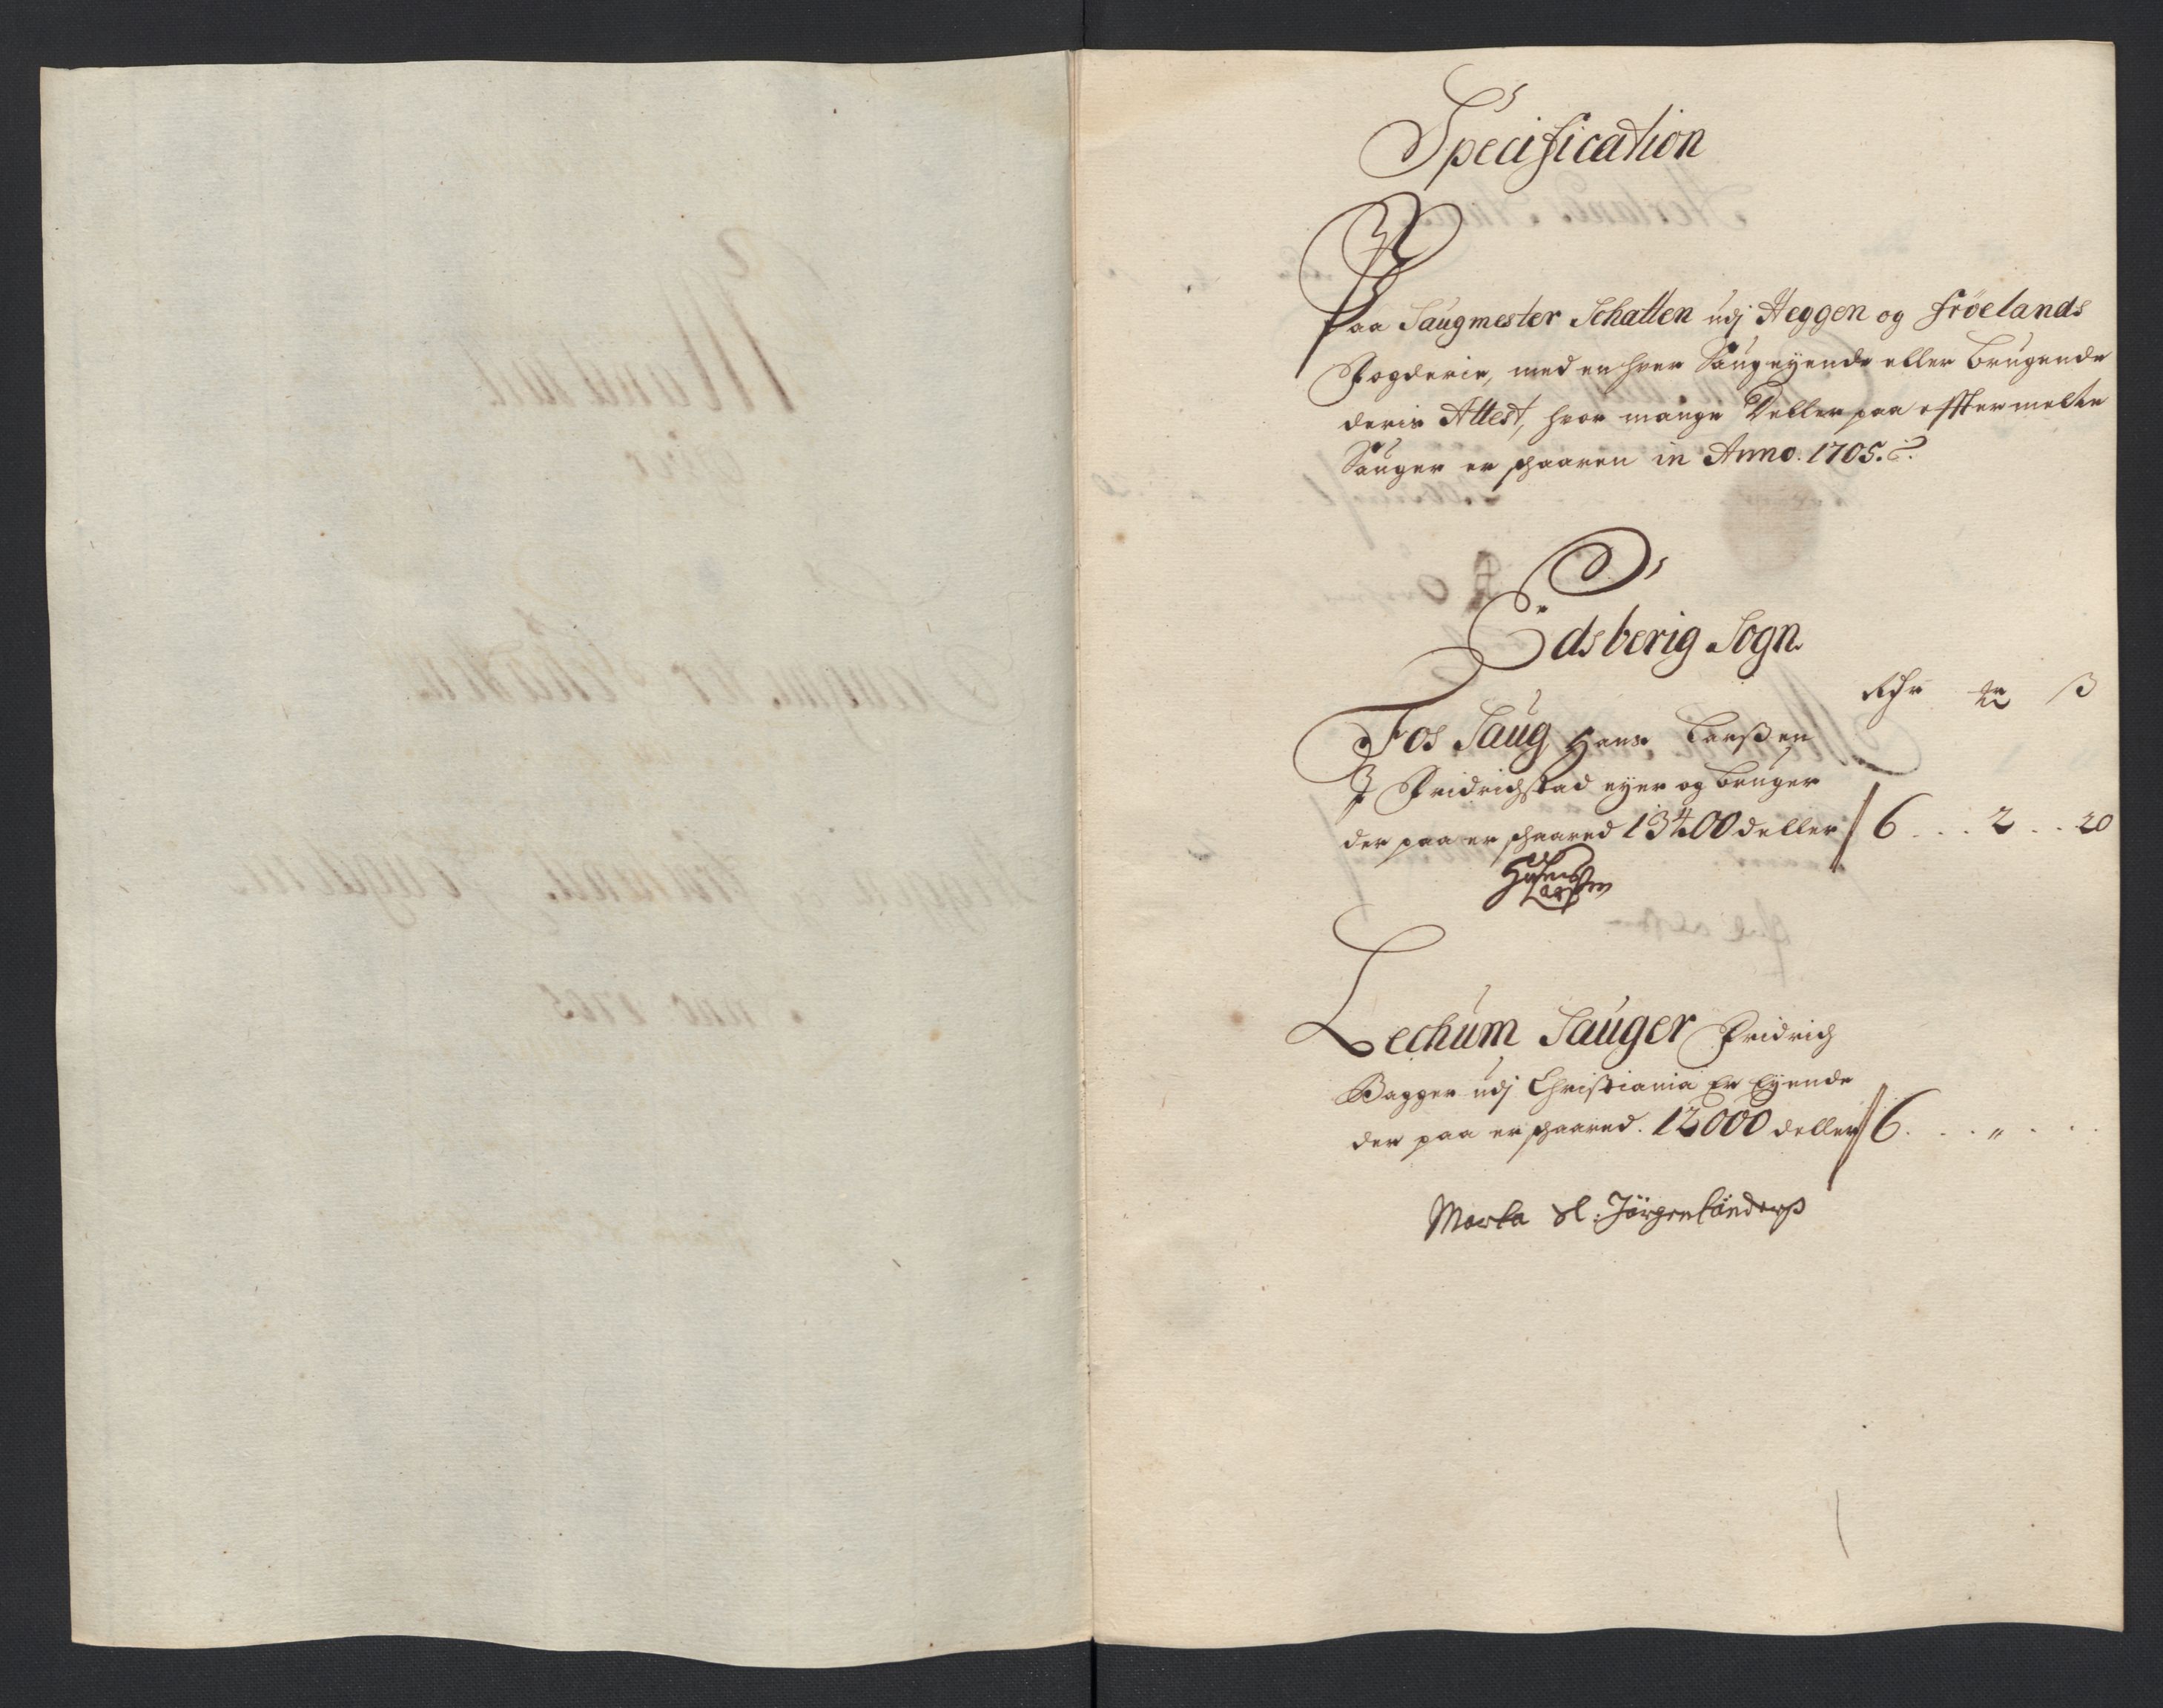 Specification
Paa Saugmester Schatten udj Heggen og Frøelands
Fogderie, med en hver Saugeyende eller brugende
deris Attest, hvor mange Deller paa efftermelte
Sauger er schaaren in Anno. 1705.
Edsberig Sogn.
Rdr ß
Fos Saug Hans Larßen
I Fridrichstad eyer og bruger
der paa er schaared 13400 deller 6 . . . 2 . . 20
Hans Larßen
Lechum Sauger Fridrich
Bagger udj Christiania Er Eyende
der paa er schaared. 12000 deller 6 . . . „ . . .
Marta Sl: Jörgen